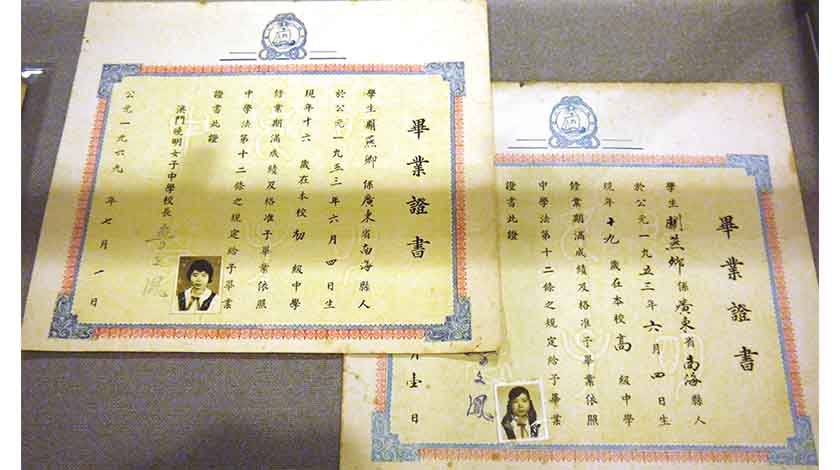 畢業證書
學生關燕鄉係廣東省南海縣人
於公元一九五三年六月四日生
現年十六歲在本校初級中學
修業期滿成績及格准予畢業依照
中學法第十二條之規定給予畢業
證書此證
澳門曉明女子中學校長
公元一九六九年七月一日
畢業證書
學生關燕鄉係廣東省南海縣人
於公元一九五三年六月四日生
現年十九歲在本校高級中學
修業期滿成績及格准予畢業依照
中學法第十二條之規定給予畢業
證書此證
文鳳
月壹日